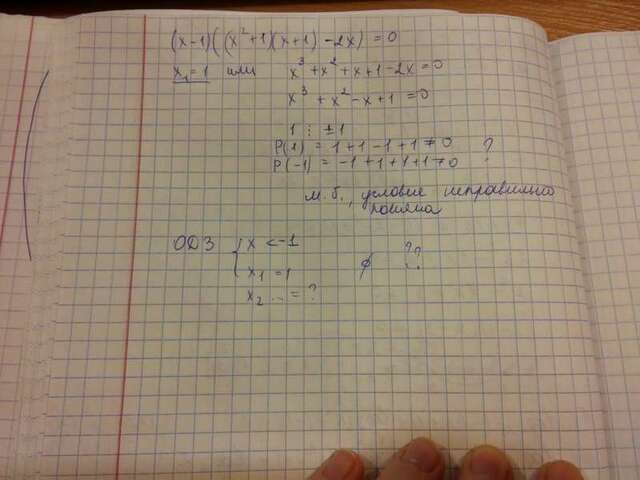 (x-1)((x²+1)(x+1)-2x)=0
x₁=1 или x³+x²+x+1-2x=0
x³+x²-x+1=0
1 ⋮ ±1
P(1) = 1+1-1+1≠0 ?
P(-1) = -1+1+1+1≠0
м.б., условие неправильно
поняла
ОДЗ { x <-1
x₁ =1 ∅ ??
x₂ ... = ?